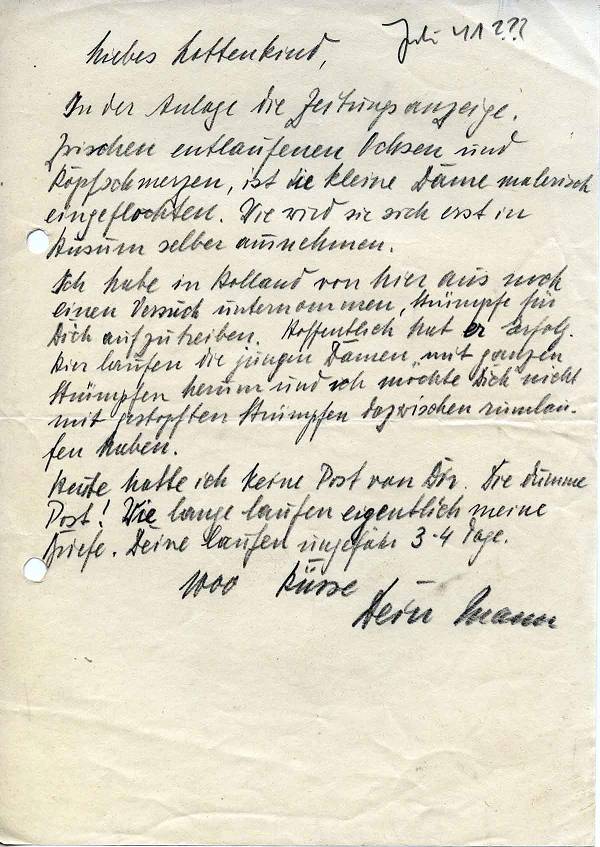 Juli 41???
Liebes Lottenkind,
In der Anlage die Zeitungsanzeige.
Zwischen entlaufenen Ochsen und
Kopfschmerzen, ist die kleine Dame malerisch
eingeflochten. Wie wird sie sich erst in
Husum selber ausnehmen.
Ich habe in Holland von hier aus noch
einen Versuch unternommen, Strümpfe für
Dich aufzutreiben. Hoffentlich hat er Erfolg.
Hier laufen die jungen Damen mit ganzen
Strümpfen herum und ich möchte Dich nicht
mit gestopften Strümpfen dazwischen rumlau-
fen haben.
Heute hatte ich keine Post von Dir. Die dumme
Post! Wie lange laufen eigentlich meine
Briefe. Deine laufen ungefähr 3-4 Tage.
1000 Küsse
Dein Mann